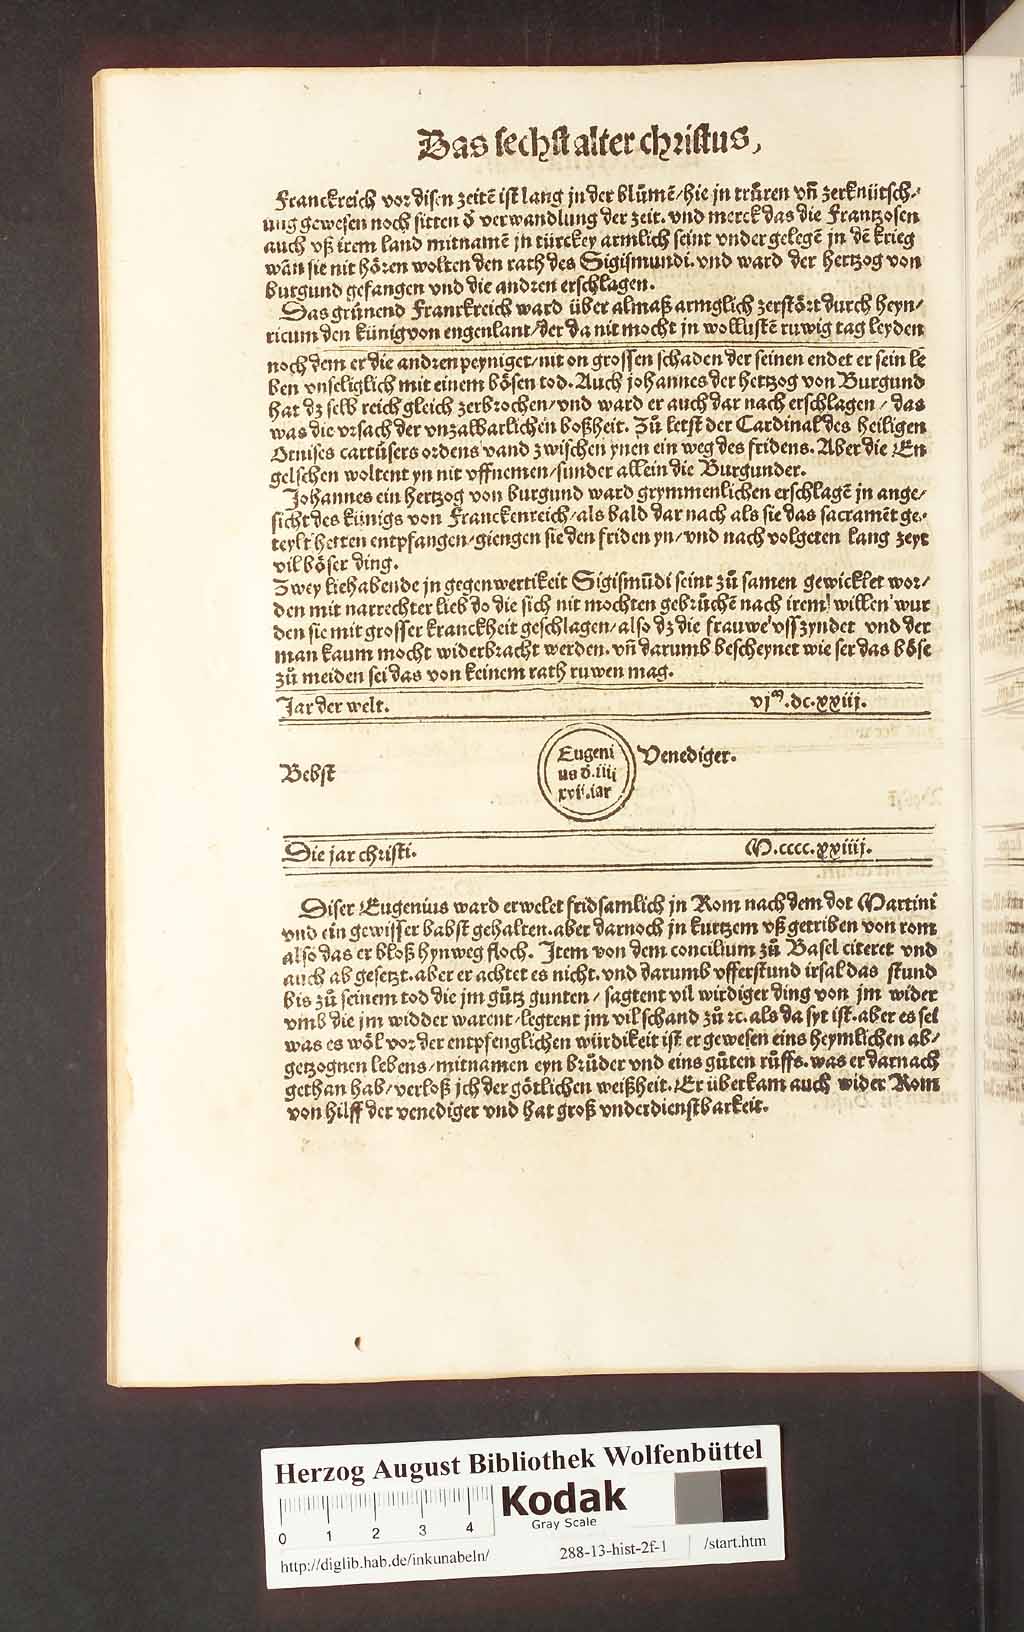 Das sechst alter christus,
Franckreich vor disen zeitē ist lang jn der blůmē/hie jn trůren vñ zerknütsch⸗
ung gewesen noch sitten d̄ verwandlung der zeit. vnd merck das die Frantzosen
auch vß irem land mitnamē jn türckey armlich seint vnder gelegē jn dē krieg
wān sie nit hören wolten den rath des Sigismundi. vnd ward der hertzog von
burgund gefangen vnd die andren erschlagen.
Das grünend Franckreich ward über almaß armglich zerstört durch heyn/
ricum den künig von engenlant/der da nit mocht jn wollustē ruwig tag leyden
noch dem er die andren peyniget/nit on grossen schaden der seinen endet er sein lē
ben vnseliglich mit einem bösen tod. Auch johannes der hertzog von Burgund
hat dz selb reich gleich zerbrochen/vnd ward er auch dar nach erschlagen/das
was die vrsach der vnzalbarlichen boßheit. Zů letst der Cardinal des heiligen
Crutses cartůsers ordens vand zwischen ynen ein weg des fridens. Aber die En
gelschen woltent yn nit vffnemen/sunder allein die Burgunder.
Johannes ein hertzog von burgund ward grymmenlichen erschlagē jn ange/
sicht des künigs von Franckenreich/als bald dar nach als sie das sacramēt ge⸗
teylt hetten entpfangen/giengen sie den friden yn/vnd nach volgeten lang zeyt
vil böser ding.
Zwey liebhabende jn gegenwertikeit Sigismūdi seint zů samen gewicklet wor/
den mit narrechter lieb do die sich nit mochten gebrůchē nach irem willen wur
den sie mit grosser kranckheit geschlagen/also dz die frauwe vsszyndet vnd der
man kaum mocht widerbracht werden. vñ darumb bescheynet wie ser das böse
zů meiden sei das von keinem rath ruwen mag.
Jar der welt. vjᵐ.dc.xxiij.
Eugeni
us d̄.iiij
xvij.iar
Venediger.
Bebst
Die jar christi. M.cccc.xxiiij.
Diser Eugenius ward erwelet fridsamlich jn Rom nach dem dot Martini
vnd ein gewisser babst gehalten. aber darnoch jn kurtzem vß getriben von rom
also das er bloß hynweg floch. Item von dem concilium zů Basel citeret vnd
auch ab gesetzt. aber er achtet es nicht. vnd darumb vfferstund irsal das stund
bis zů seinem tod die jm gůtz gunten/sagtent vil wirdiger ding von jm wider
vmb die jm widder warent/legtent jm vil schand zů ꝛc. als da syt ist. aber es sei
was es wöl vor der entpfenglichen würdikeit ist er gewesen eins heymlichen ab/
getzognen lebens/mitnamen eyn brüder vnd eins gůten růffs. was er darnach
gethan hab/verloß jch der götlichen weißheit. Er überkam auch wider Rom
von hilff der venediger vnd hat groß vnderdienstbarkeit.
Herzog August Bibliothek Wolfenbüttel
0 1 2 3 4
Kodak
Gray Scale
http://diglib.hab.de/inkunabeln/ 288-13-hist-2f-1 /start.htm